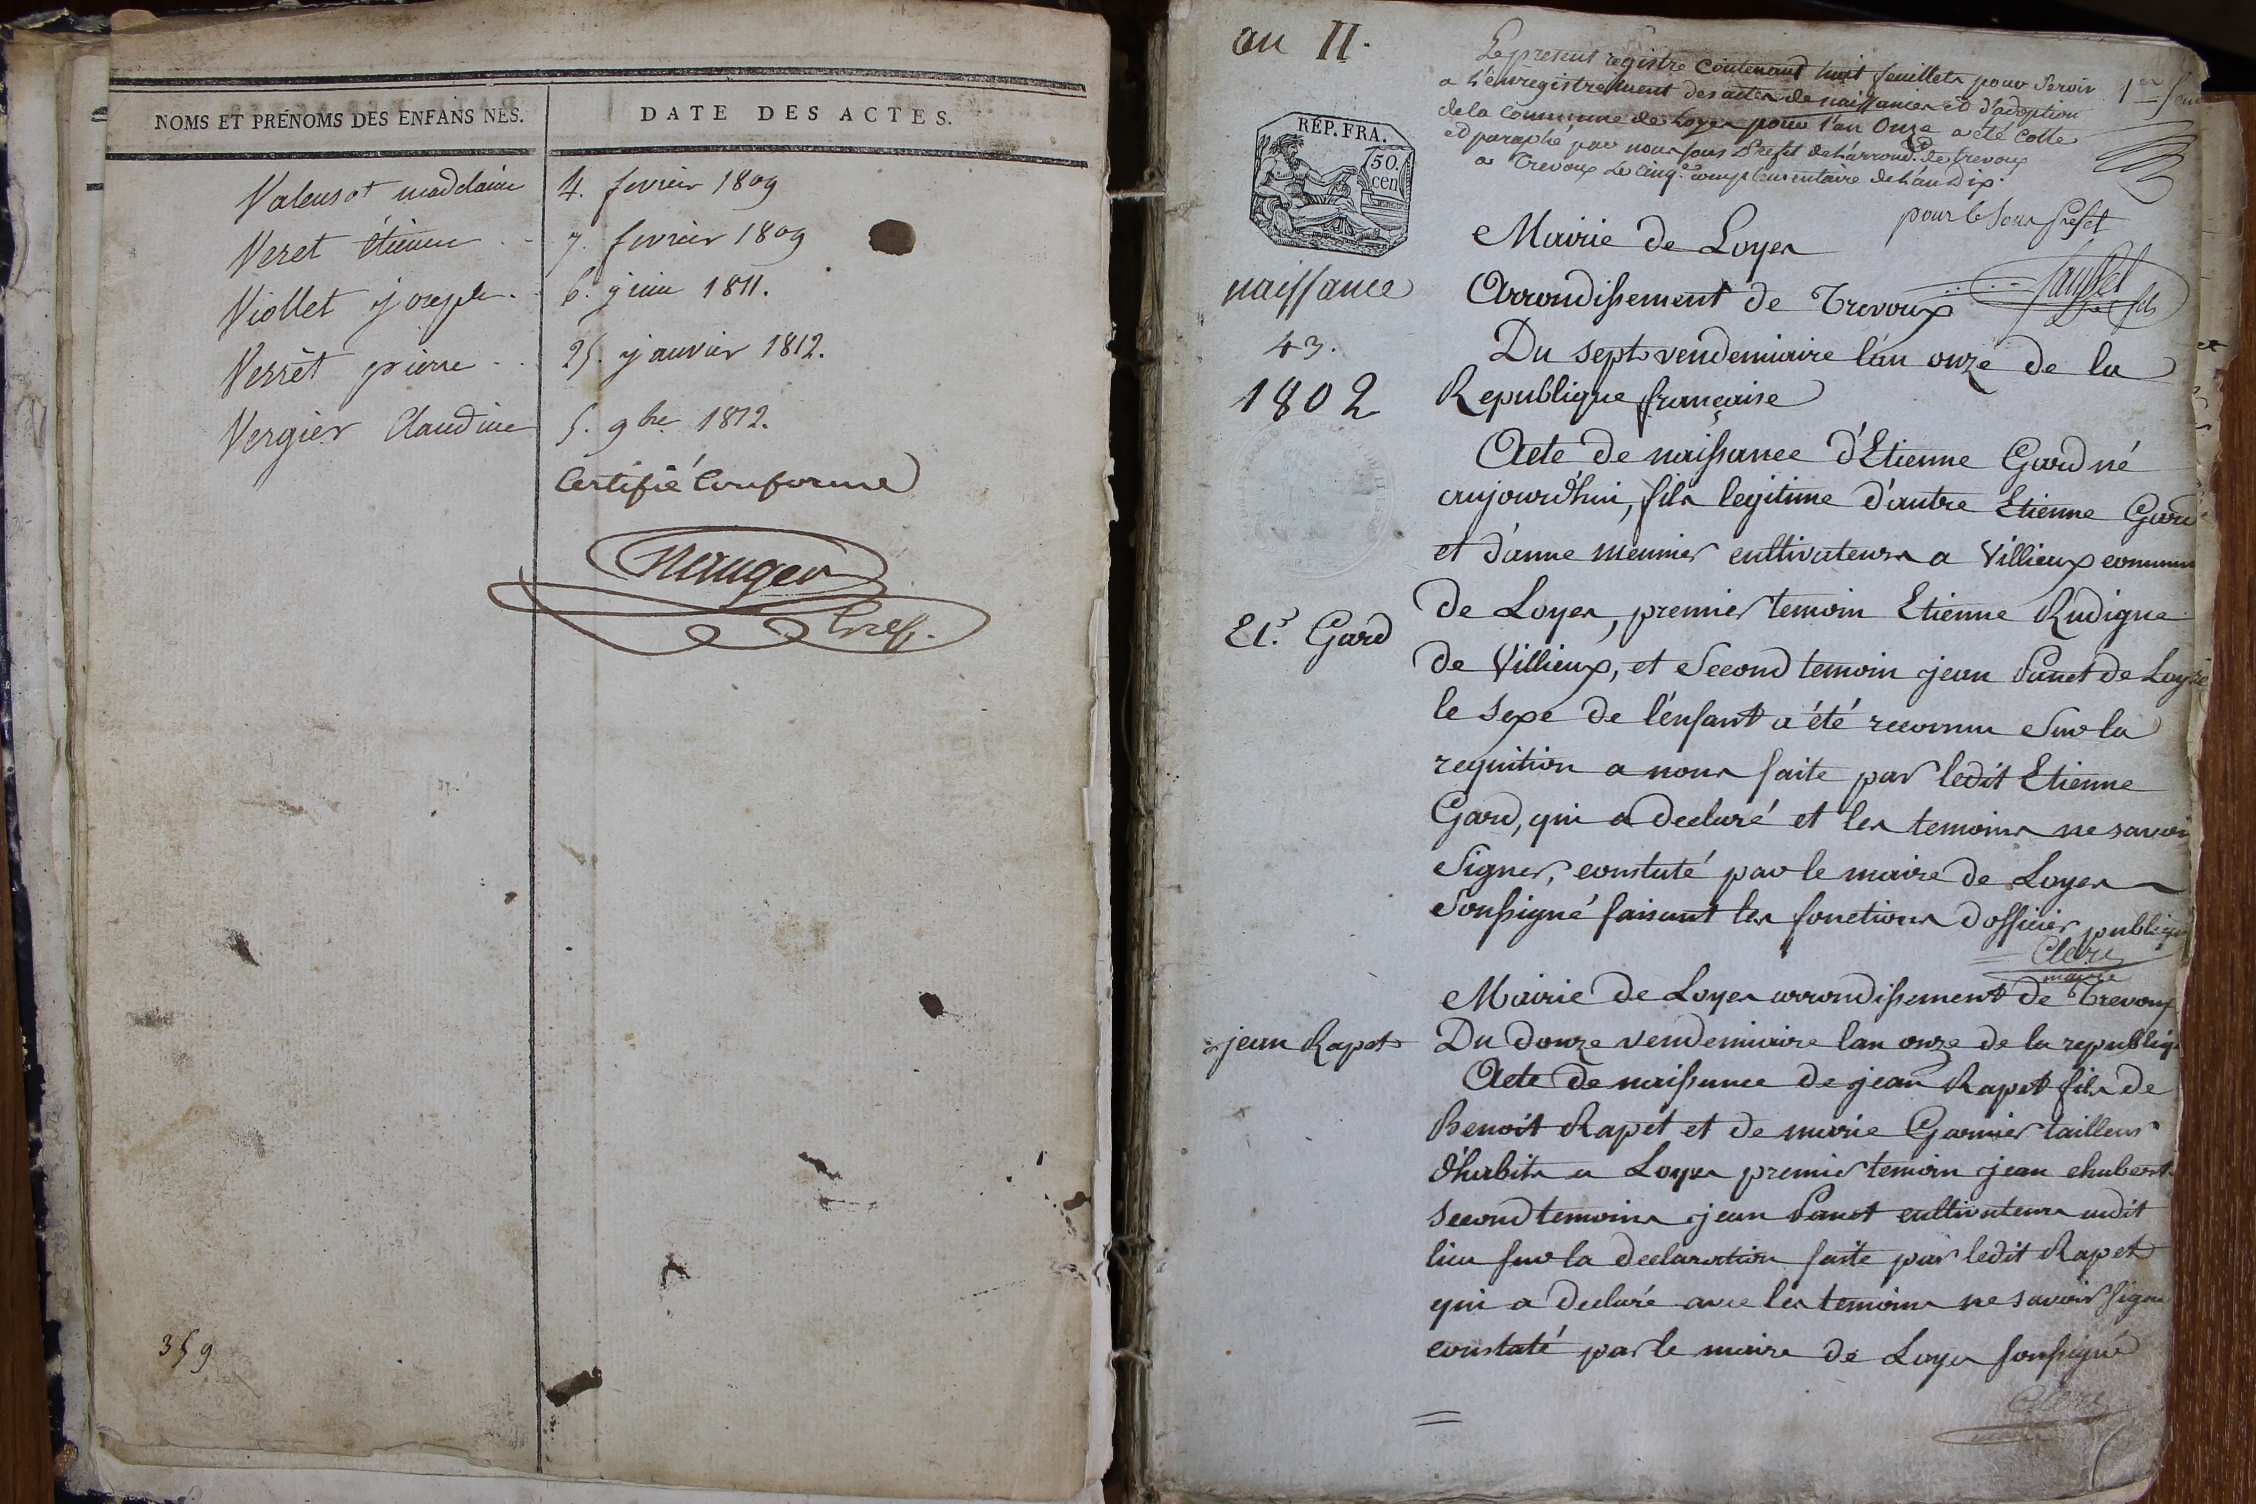 NOMS ET PRÉNOMS DES ENFANS NÉS.
DATE DES ACTES.
Valensot madelaine 4. fevrier 1809
Veret étienne 7. fevrier 1809
Viollet joseph. 6. juin 1811.
Verrêt pierre 25. janvier 1812.
Vergier Claudine 5. 9bre 1812.
Certifié Conforme
359
an II.
Le present registre contenant huit feuillets pour servir
a L'enregistrement des actes de naissances et d'adoption
de la Commune de Loyes pour l'an Onze a été Cotté
et paraphé par nous sous Prefet de L'arrond.t de trevoux
a Trevoux Le cinq.e complementaire de L'an Dix.
1er feui
pour le sous Prefet
RÉP. FRA.
50.
cen
Mairie de Loyes
naissance
Arrondissement de Trevoux
43.
Du sept vendemiaire l'an onze de la
1802
Republique française
Acte de naissance d'Etienne Gard né
aujourd'hui, fils legitime d'autre Etienne Gard
et d'anne meunier cultivateurs a Villieux commun
de Loyes, premier temoin Etienne Rudigue
Et. Gard
de Villieux, et Second temoin jean Panet de Loyes
le sexe de l'enfant a été reconnu Sur la
requition a nous faite par ledit Etienne
Gard, qui a declaré et les temoins ne savoir
Signer, constaté par le maire de Loyes
Soussigné faisant les fonctions d'officier publique
Clerc
maire
Mairie de Loyes arrondissement de Trevoux
jean Rapet
Du douze vendemiaire lan onze de la republiq
Acte de naissance de jean Rapet fils de
Benoit Rapet et de marie Garnier tailleur
d'habits a Loyes premier temoin jean chubert
second temoins jean Panet cultivateurs audit
lieu sur la declaration faite par ledit Rapet
qui a declaré avec les temoins ne savoir signer
constaté par le maire de Loyes soussigné
Clerc